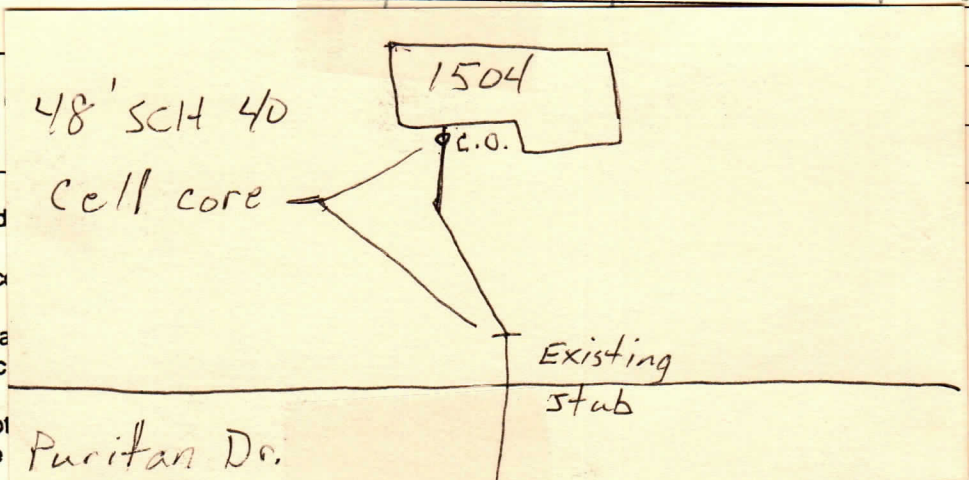 1504
48' SCH 40
C.O.
Cell core
Existing
Stub
Puritan Dr.